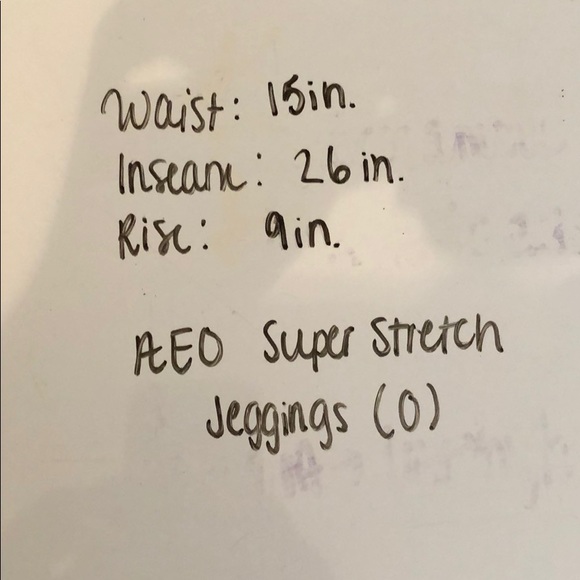 Waist: 15in.
Inseam: 26in.
Rise: 9in.
AEO Super Stretch
Jeggings (0)